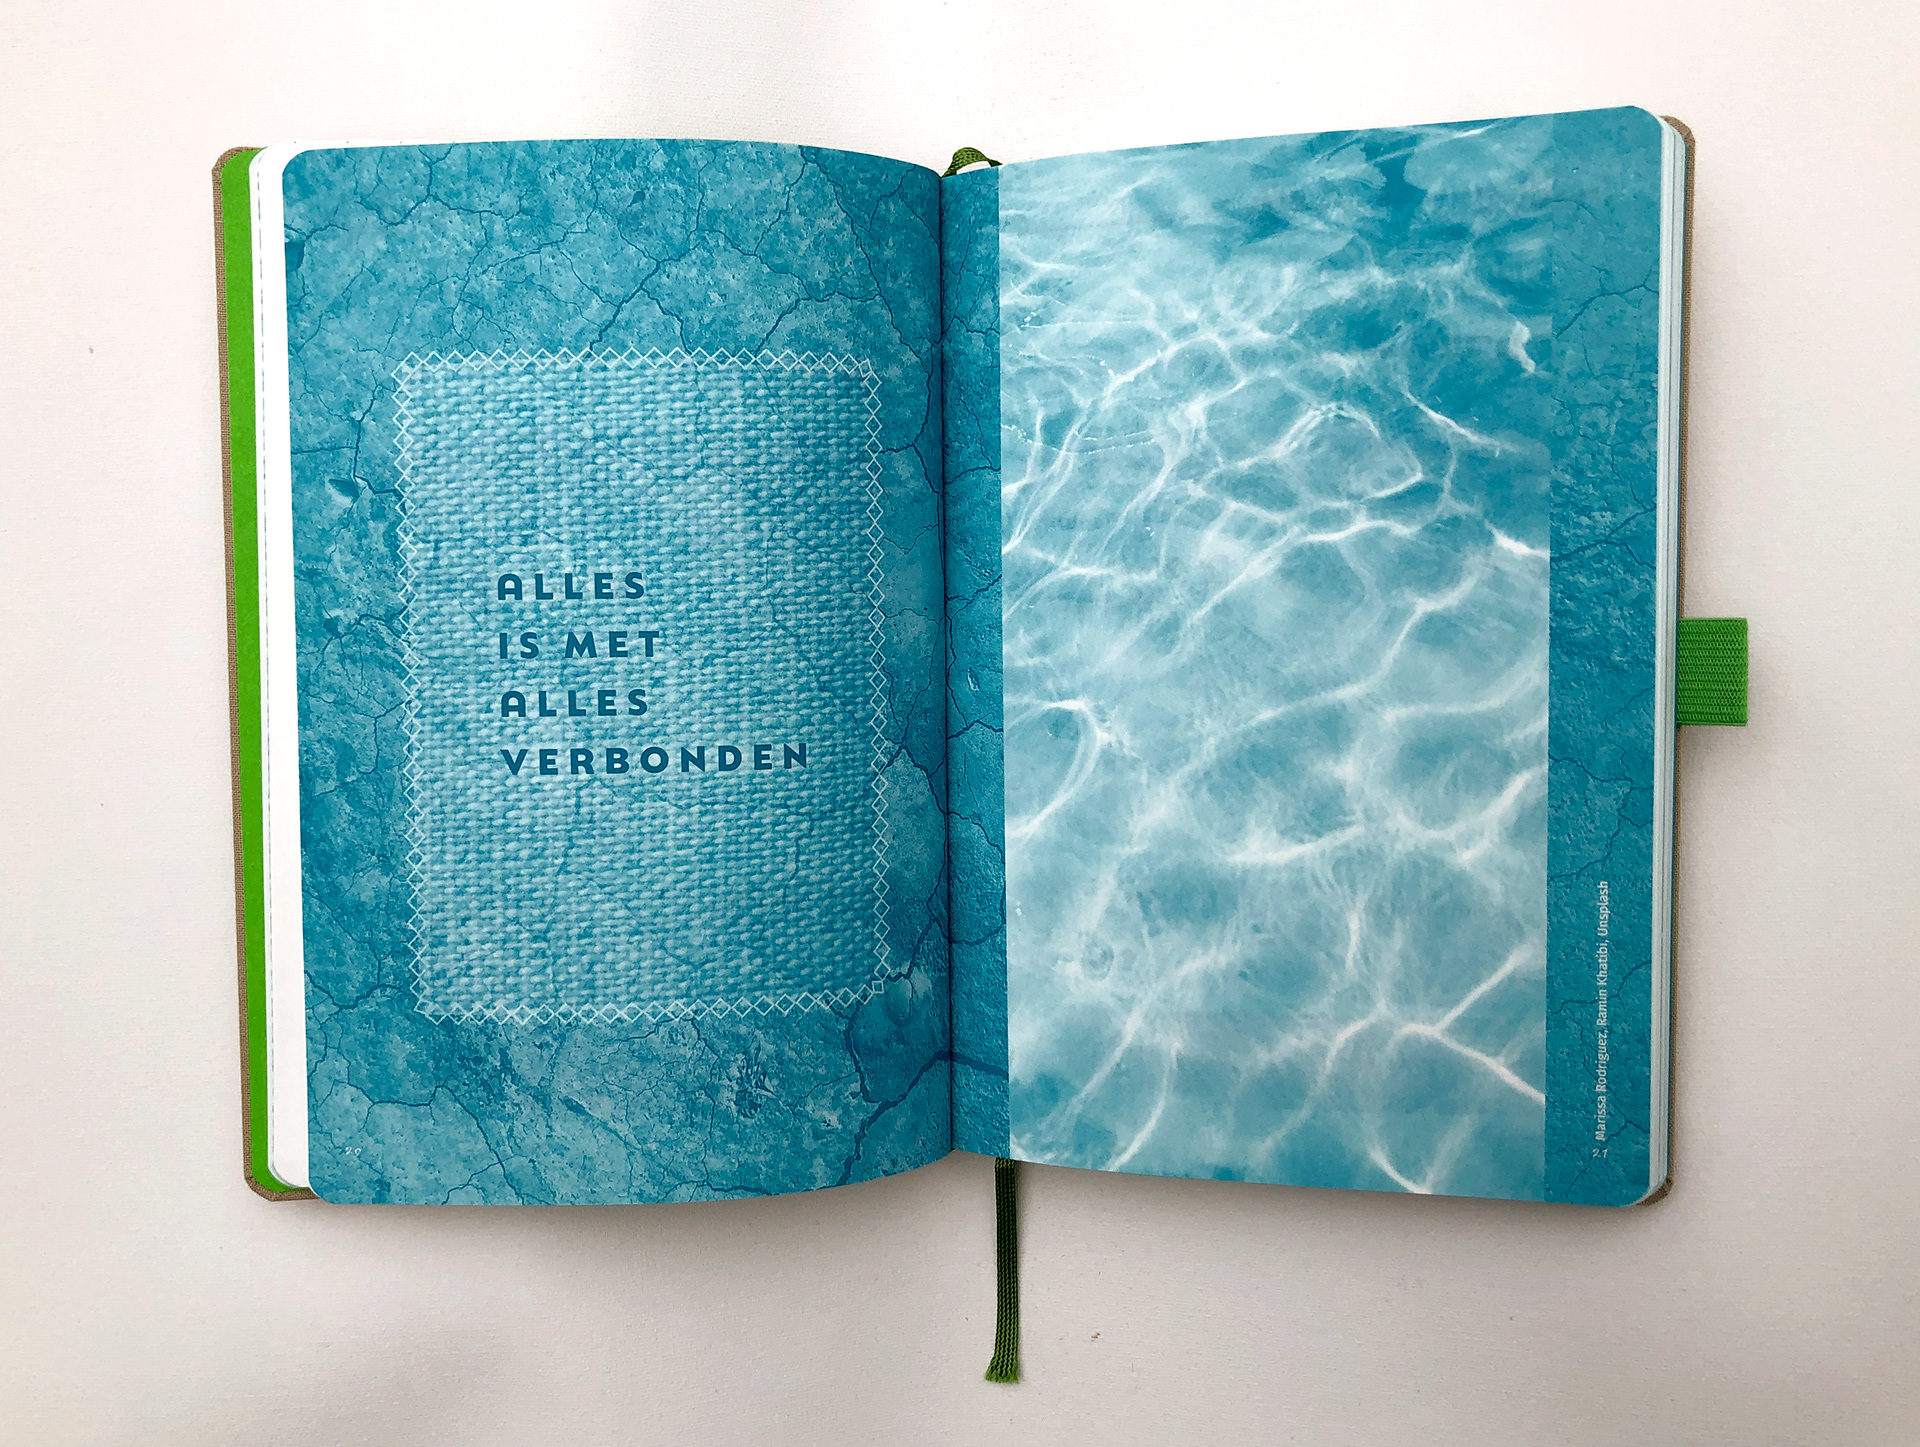 ALLES
IS MET
ALLES
VERBONDEN
20
Marissa Rodriguez, Ramin Khatibi, Unsplash
21